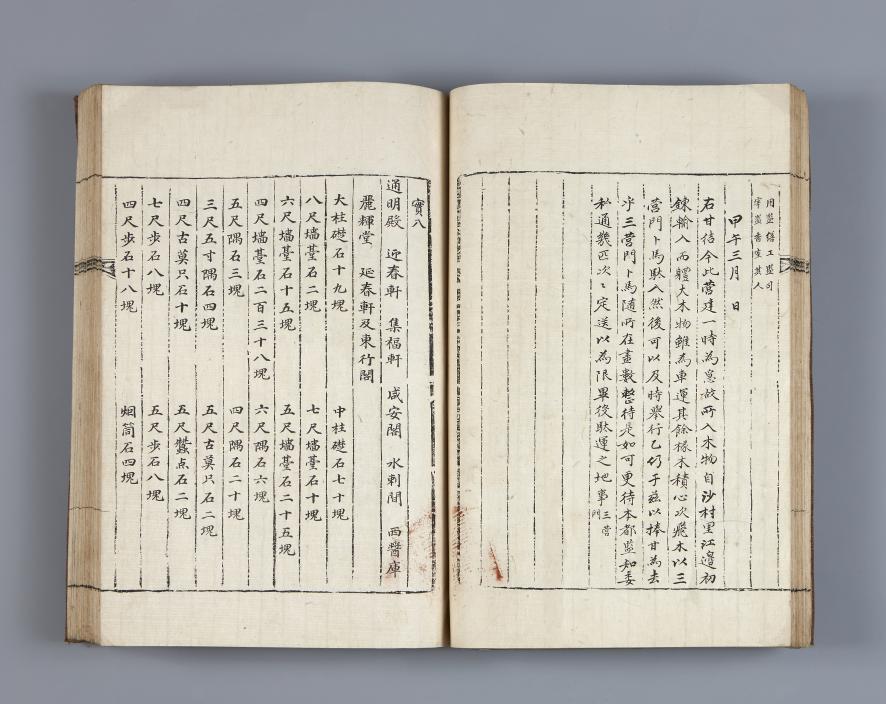 甲午三月 日
右甘結今此營建一時為急故所入木物自沙村里江邊初
錬輸入而體大木物雖為車運其餘椽木積心次飛木以三
營門卜馬駄入然後可以及時舉行乙仍于玆以捧甘為去
乎三營門卜馬隨所在盡數整待是如可更待本都監知委
私通幾匹次次定送以為限畢後駄運之地事 三營門
實入
通明殿 迎春軒 集福軒 咸安閣 水剌間 西醬庫
麗輝堂 延春軒及東行閣
大柱礎石十九塊 中柱礎石七十塊
八尺墻臺石二塊 七尺墻臺石十塊
六尺墻臺石十五塊 五尺墻臺石二十五塊
四尺墻臺石二百三十八塊 六尺隅石六塊
五尺隅石三塊 四尺隅石二十塊
三尺五寸隅石四塊 五尺古莫只石二塊
四尺古莫只石十塊 五尺蠶点石二塊
七尺步石八塊 五尺步石八塊
四尺步石十八塊 烟筒石四塊